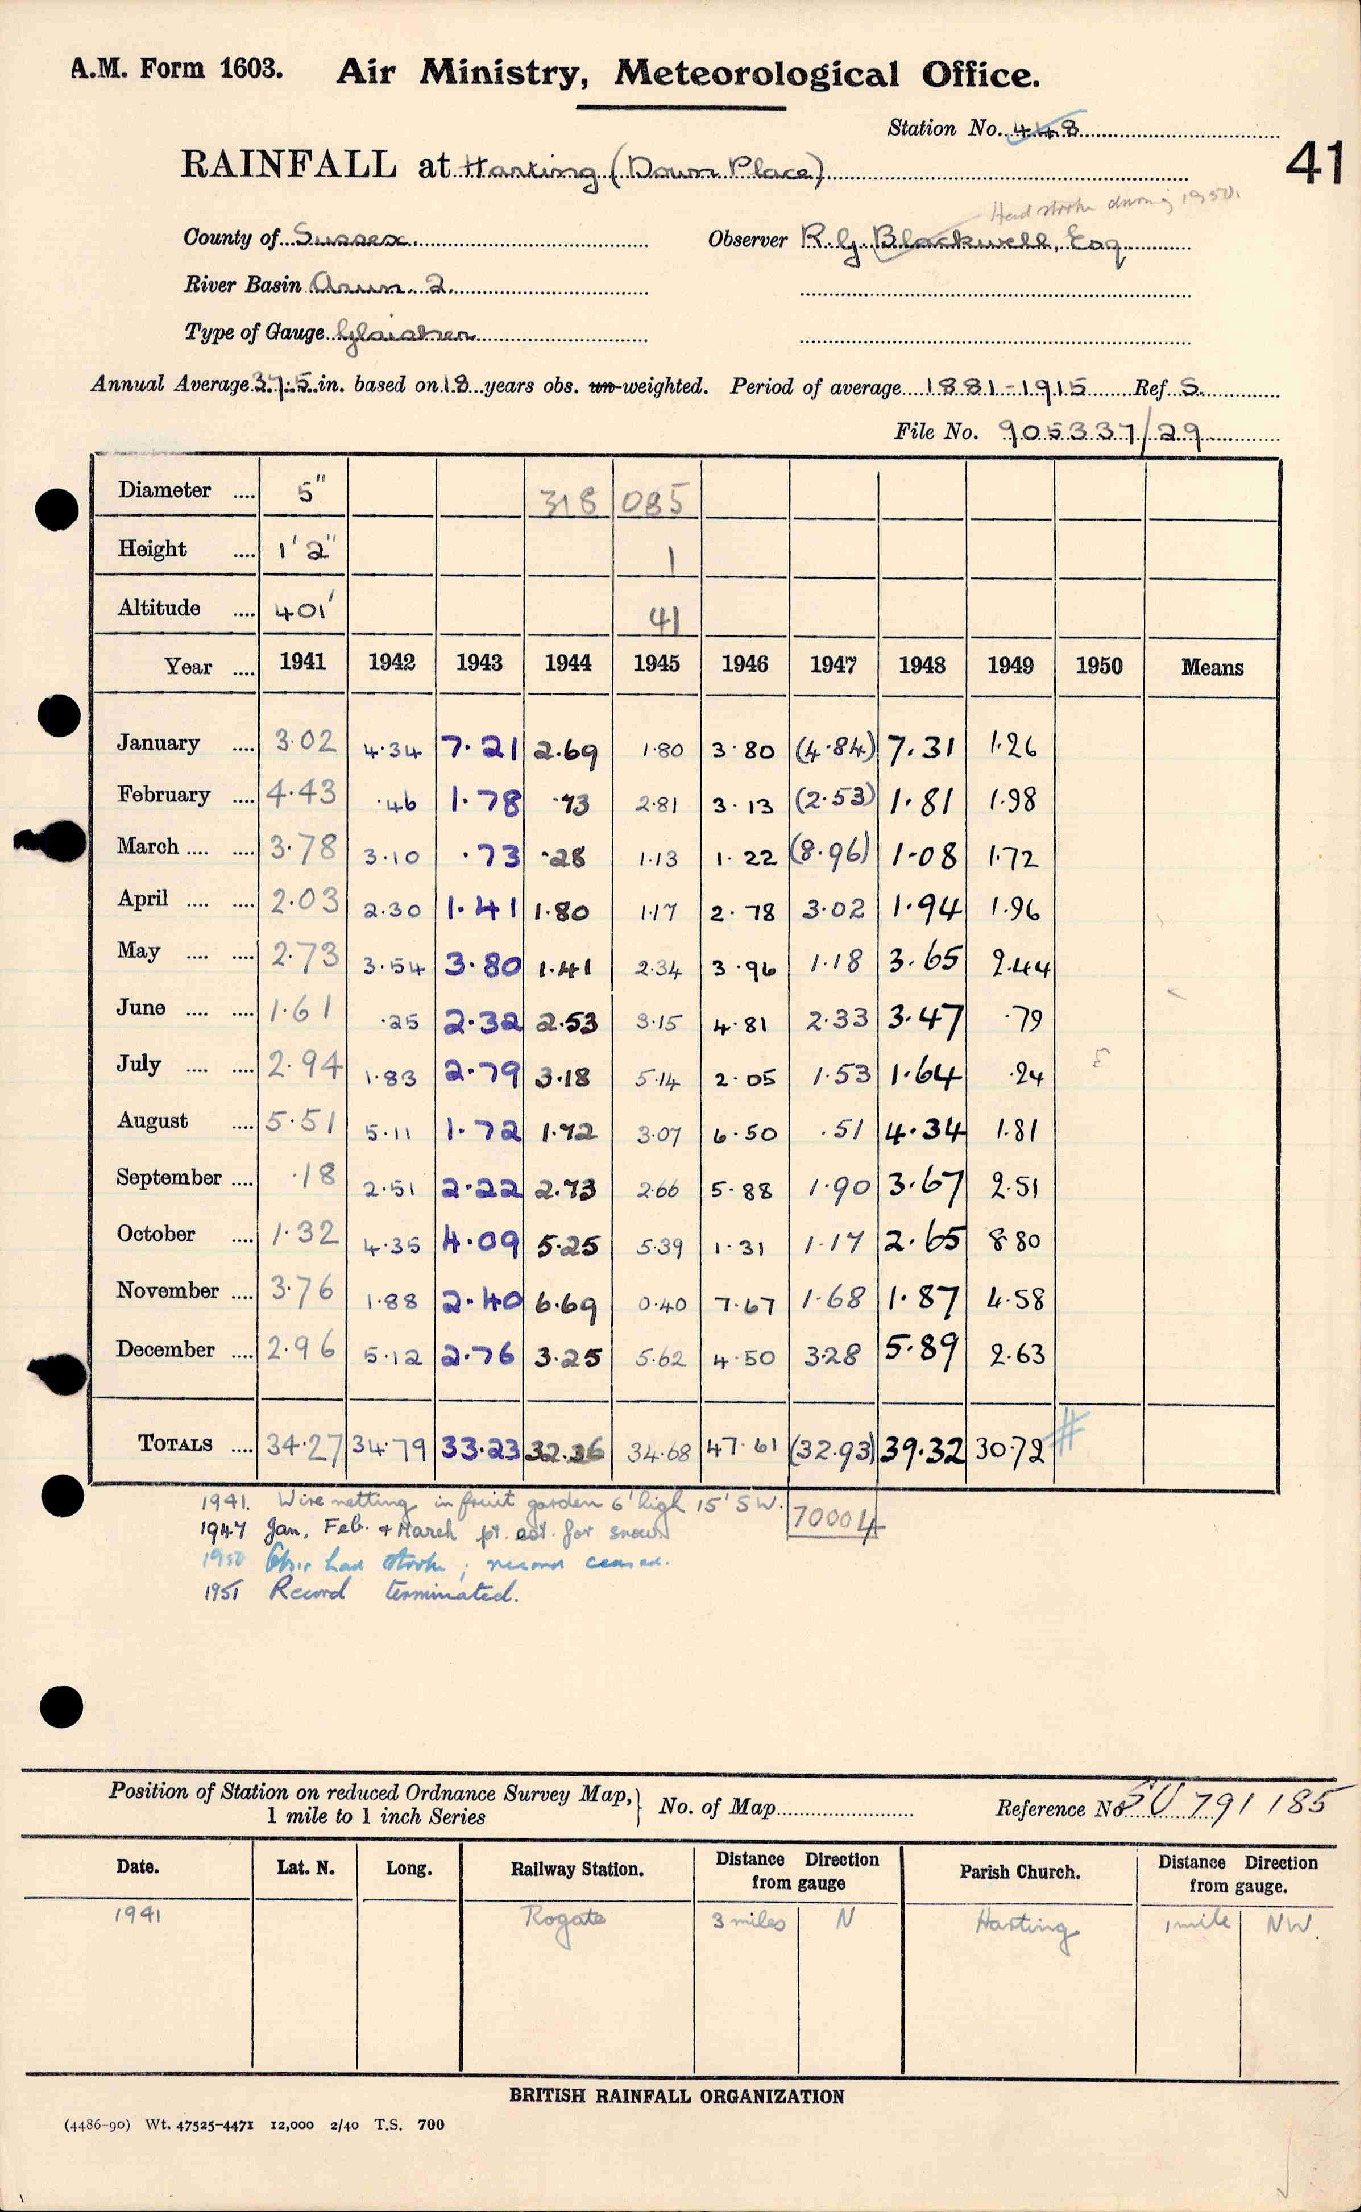 A.M. Form 1603. Air Ministry, Meteorological Office.
Station No. 448
41
RAINFALL at Harting (Down Place)
Had stroke during 1950.
County of Sussex. Observer R. G. Blackwell, Esq
River Basin Arun. 2.
Type of Gauge Glaisher
Annual Average 37.5 in. based on 18 years obs. un-weighted. Period of average 1881-1915 Ref. S.
File No. 905337/29
Diameter .... 5" 318 085
Height .... 1' 2" 1
Altitude .... 401' 41
Year .... 1941 1942 1943 1944 1945 1946 1947 1948 1949 1950 Means
January .... 3.02 4.34 7.21 2.69 1.80 3.80 (4.84) 7.31 1.26
February .... 4.43 .46 1.78 .73 2.81 3.13 (2.53) 1.81 1.98
March .... .... 3.78 3.10 .73 .28 1.13 1.22 (8.96) 1.08 1.72
April .... .... 2.03 2.30 1.41 1.80 1.17 2.78 3.02 1.94 1.96
May .... .... 2.73 3.54 3.80 1.41 2.34 3.96 1.18 3.65 2.44
June .... .... 1.61 .25 2.32 2.53 3.15 4.81 2.33 3.47 .79
July .... .... 2.94 1.83 2.79 3.18 5.14 2.05 1.53 1.64 .24
August .... 5.51 5.11 1.72 1.72 3.07 6.50 .51 4.34 1.81
September .... .18 2.51 2.22 2.73 2.66 5.88 1.90 3.67 2.51
October .... 1.32 4.35 4.09 5.25 5.39 1.31 1.17 2.65 8.80
November .... 3.76 1.88 2.40 6.69 0.40 7.67 1.68 1.87 4.58
December .... 2.96 5.12 2.76 3.25 5.62 4.50 3.28 5.89 2.63
TOTALS .... 34.27 34.79 33.23 32.26 34.68 47.61 (32.93) 39.32 30.72 #
1941. Wire netting in fruit garden 6' high 15' SW.
70004
1947 Jan, Feb. & March pt. est. for snow
1950 Obsr had stroke; record ceased.
1951 Record terminated.
Position of Station on reduced Ordnance Survey Map,
1 mile to 1 inch Series
No. of Map Reference No SU 791 185
Date. Lat. N. Long. Railway Station. Distance Direction from gauge Parish Church. Distance Direction from gauge.
1941 Rogate 3 miles N Harting 1 mile NW.
BRITISH RAINFALL ORGANIZATION
(4486-90) Wt. 47525-4471 12,000 2/40 T.S. 700